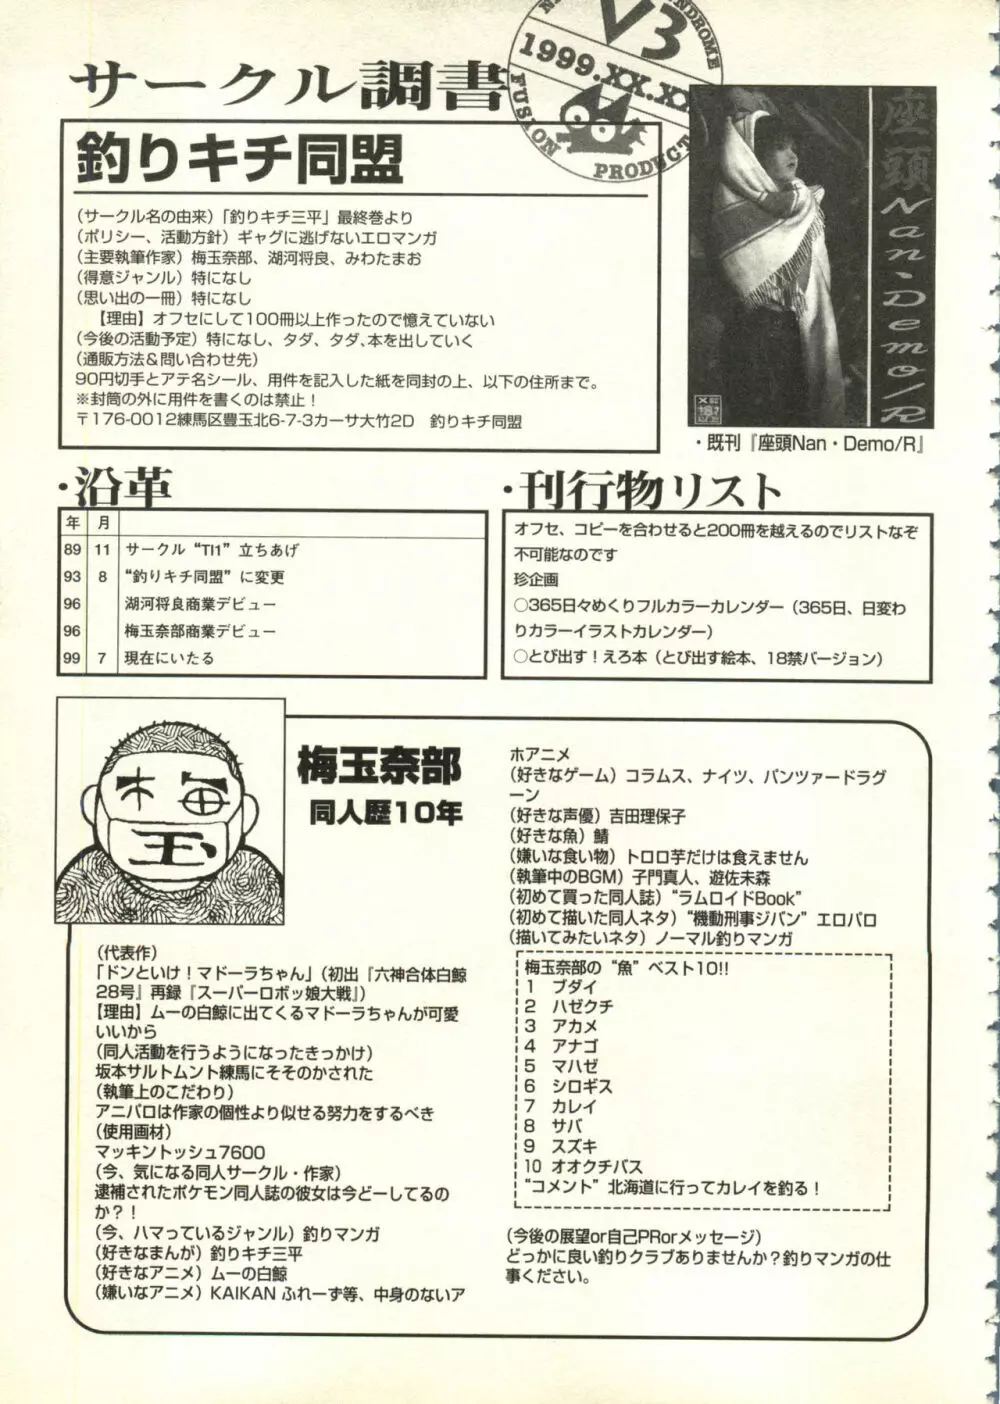 V3
SYNDROME
1999.XX.XX
FUSION PRODUCT
サークル調書
釣りキチ同盟
(サークル名の由来)「釣りキチ三平」最終巻より
(ポリシー、活動方針) ギャグに逃げないエロマンガ
(主要執筆作家) 梅玉奈部、湖河将良、みわたまお
(得意ジャンル) 特になし
(思い出の一冊) 特になし
【理由】オフセにして100冊以上作ったので憶えていない
(今後の活動予定) 特になし、タダ、タダ、本を出していく
(通販方法&問い合わせ先)
90円切手とアテ名シール、用件を記入した紙を同封の上、以下の住所まで。
※封筒の外に用件を書くのは禁止！
〒176-0012練馬区豊玉北6-7-3カーサ大竹2D　釣りキチ同盟
座頭Nan・Demo/R
・既刊『座頭Nan・Demo/R』
・沿革
年 月
89 11 サークル“TI1”立ちあげ
93 8 “釣りキチ同盟”に変更
96 湖河将良商業デビュー
96 梅玉奈部商業デビュー
99 7 現在にいたる
・刊行物リスト
オフセ、コピーを合わせると200冊を越えるのでリストなぞ
不可能なのです
珍企画
○365日々めくりフルカラーカレンダー（365日、日変わ
りカラーイラストカレンダー）
○とび出す！えろ本（とび出す絵本、18禁バージョン）
木 毎
玉
梅玉奈部
同人歴10年
(代表作)
「ドンといけ！マドーラちゃん」(初出『六神合体白鯨
28号』再録『スーパーロボッ娘大戦』)
【理由】ムーの白鯨に出てくるマドーラちゃんが可愛
いいから
(同人活動を行うようになったきっかけ)
坂本サルトムント練馬にそそのかされた
(執筆上のこだわり)
アニパロは作家の個性より似せる努力をするべき
(使用画材)
マッキントッシュ7600
(今、気になる同人サークル・作家)
逮捕されたポケモン同人誌の彼女は今どーしてるの
か？！
(今、ハマっているジャンル) 釣りマンガ
(好きなまんが) 釣りキチ三平
(好きなアニメ) ムーの白鯨
(嫌いなアニメ) KAIKAN ふれーず等、中身のないア
ホアニメ
(好きなゲーム) コラムス、ナイツ、パンツァードラグ
ーン
(好きな声優) 吉田理保子
(好きな魚) 鯖
(嫌いな食い物) トロロ芋だけは食えません
(執筆中のBGM) 子門真人、遊佐未森
(初めて買った同人誌) “ラムロイドBook”
(初めて描いた同人ネタ) “機動刑事ジバン” エロパロ
(描いてみたいネタ) ノーマル釣りマンガ
梅玉奈部の “魚” ベスト10!!
1 ブダイ
2 ハゼクチ
3 アカメ
4 アナゴ
5 マハゼ
6 シロギス
7 カレイ
8 サバ
9 スズキ
10 オオクチバス
“コメント” 北海道に行ってカレイを釣る！
(今後の展望or自己PRorメッセージ)
どっかに良い釣りクラブありませんか？釣りマンガの仕
事ください。